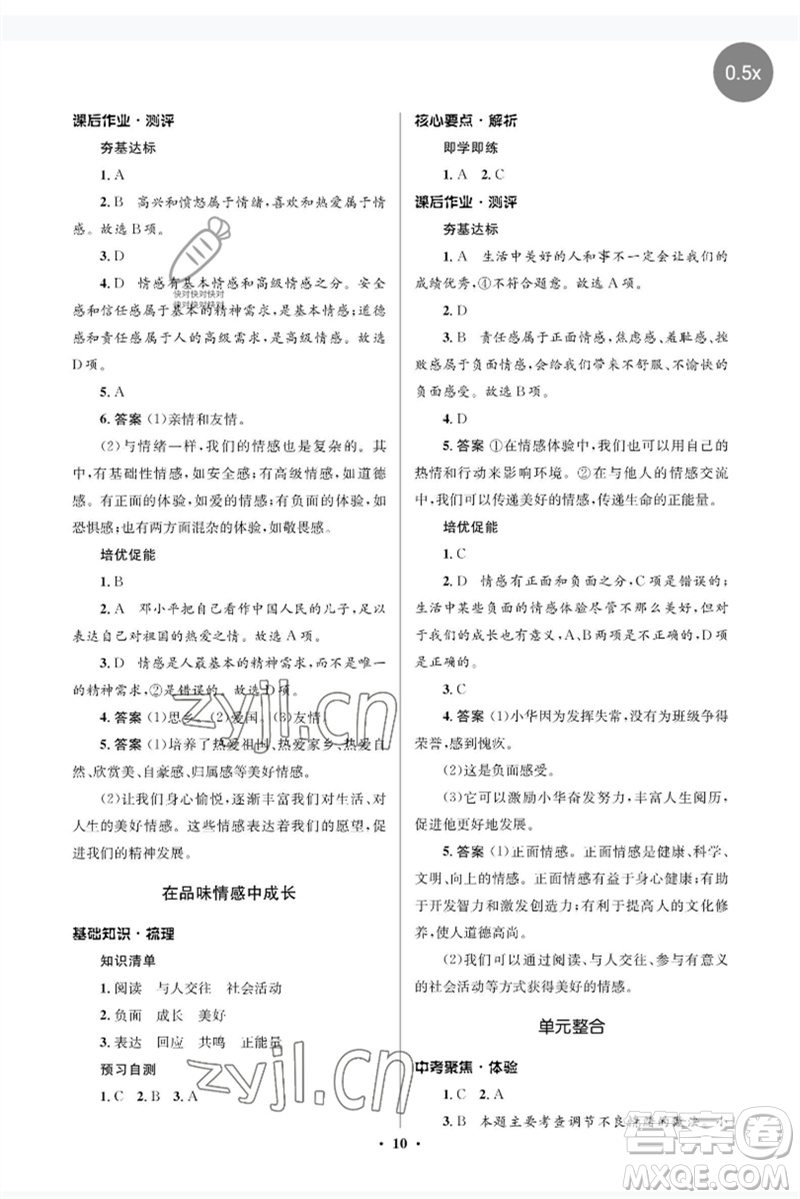 0.5x
课后作业·测评
夯基达标
1. A
2. B 高兴和愤怒属于情绪,喜欢和热爱属于情
感。故选B项。
3. D
4. D 情感有基本情感和高级情感之分。安全
感和信任感属于基本的精神需求,是基本情感;道德
感和责任感属于人的高级需求,是高级情感。故选
D项。
5. A
6. 答案 (1)亲情和友情。
(2)与情绪一样,我们的情感也是复杂的。其
中,有基础性情感,如安全感;有高级情感,如道德
感。有正面的体验,如爱的情感;有负面的体验,如
恐惧感;也有两方面混杂的体验,如敬畏感。
培优促能
1. B
2. A 邓小平把自己看作中国人民的儿子,足以
表达自己对祖国的热爱之情。故选A项。
3. D 情感是人最基本的精神需求,而不是唯一
的精神需求,②是错误的。故选D项。
4. 答案 (1)思乡。(2)爱国。(3)友情。
5. 答案 (1)培养了热爱祖国、热爱家乡、热爱自
然、欣赏美、自豪感、归属感等美好情感。
(2)让我们身心愉悦,逐渐丰富我们对生活、对
人生的美好情感。这些情感表达着我们的愿望,促
进我们的精神发展。
在品味情感中成长
基础知识·梳理
知识清单
1. 阅读 与人交往 社会活动
2. 负面 成长 美好
3. 表达 回应 共鸣 正能量
预习自测
1. C 2. B 3. A
核心要点·解析
即学即练
1. A 2. C
课后作业·测评
夯基达标
1. A 生活中美好的人和事不一定会让我们的
成绩优秀,④不符合题意。故选A项。
2. D
3. B 责任感属于正面情感,焦虑感、羞耻感、挫
败感属于负面情感,会给我们带来不舒服、不愉快的
负面感受。故选B项。
4. D
5. 答案 ①在情感体验中,我们可以用自己的
热情和行动来影响环境。②在与他人的情感交流
中,我们可以传递美好的情感,传递生命的正能量。
培优促能
1. C
2. D 情感有正面和负面之分,C项是错误的;
生活中某些负面的情感体验尽管不那么美好,但对
我们的成长也有意义,A、B两项是错误的,D项是
正确的。
3. C
4. 答案 (1)小华因为发挥失常,没有为班级争得
荣誉,感到愧疚。
(2)这是负面感受。
(3)它可以激励小华奋发努力,丰富人生阅历,
促进他更好地发展。
5. 答案 (1)正面情感。正面情感是健康、科学、
文明、向上的情感。正面情感有益于身心健康;有助
于开发智力和激发创造力;有利于提高人的文化修
养,使人道德高尚。
(2)我们可以通过阅读、与人交往、参与有意义
的社会活动等方式获得美好的情感。
单元整合
中考聚焦·体验
1. C 2. A
3. B 本题主要考查调节不良情绪的做法。小
· 10 ·
快对快对快对
快对快对快对
zyjl.cn
zyjl.cn
答案圈
MXQE.COM